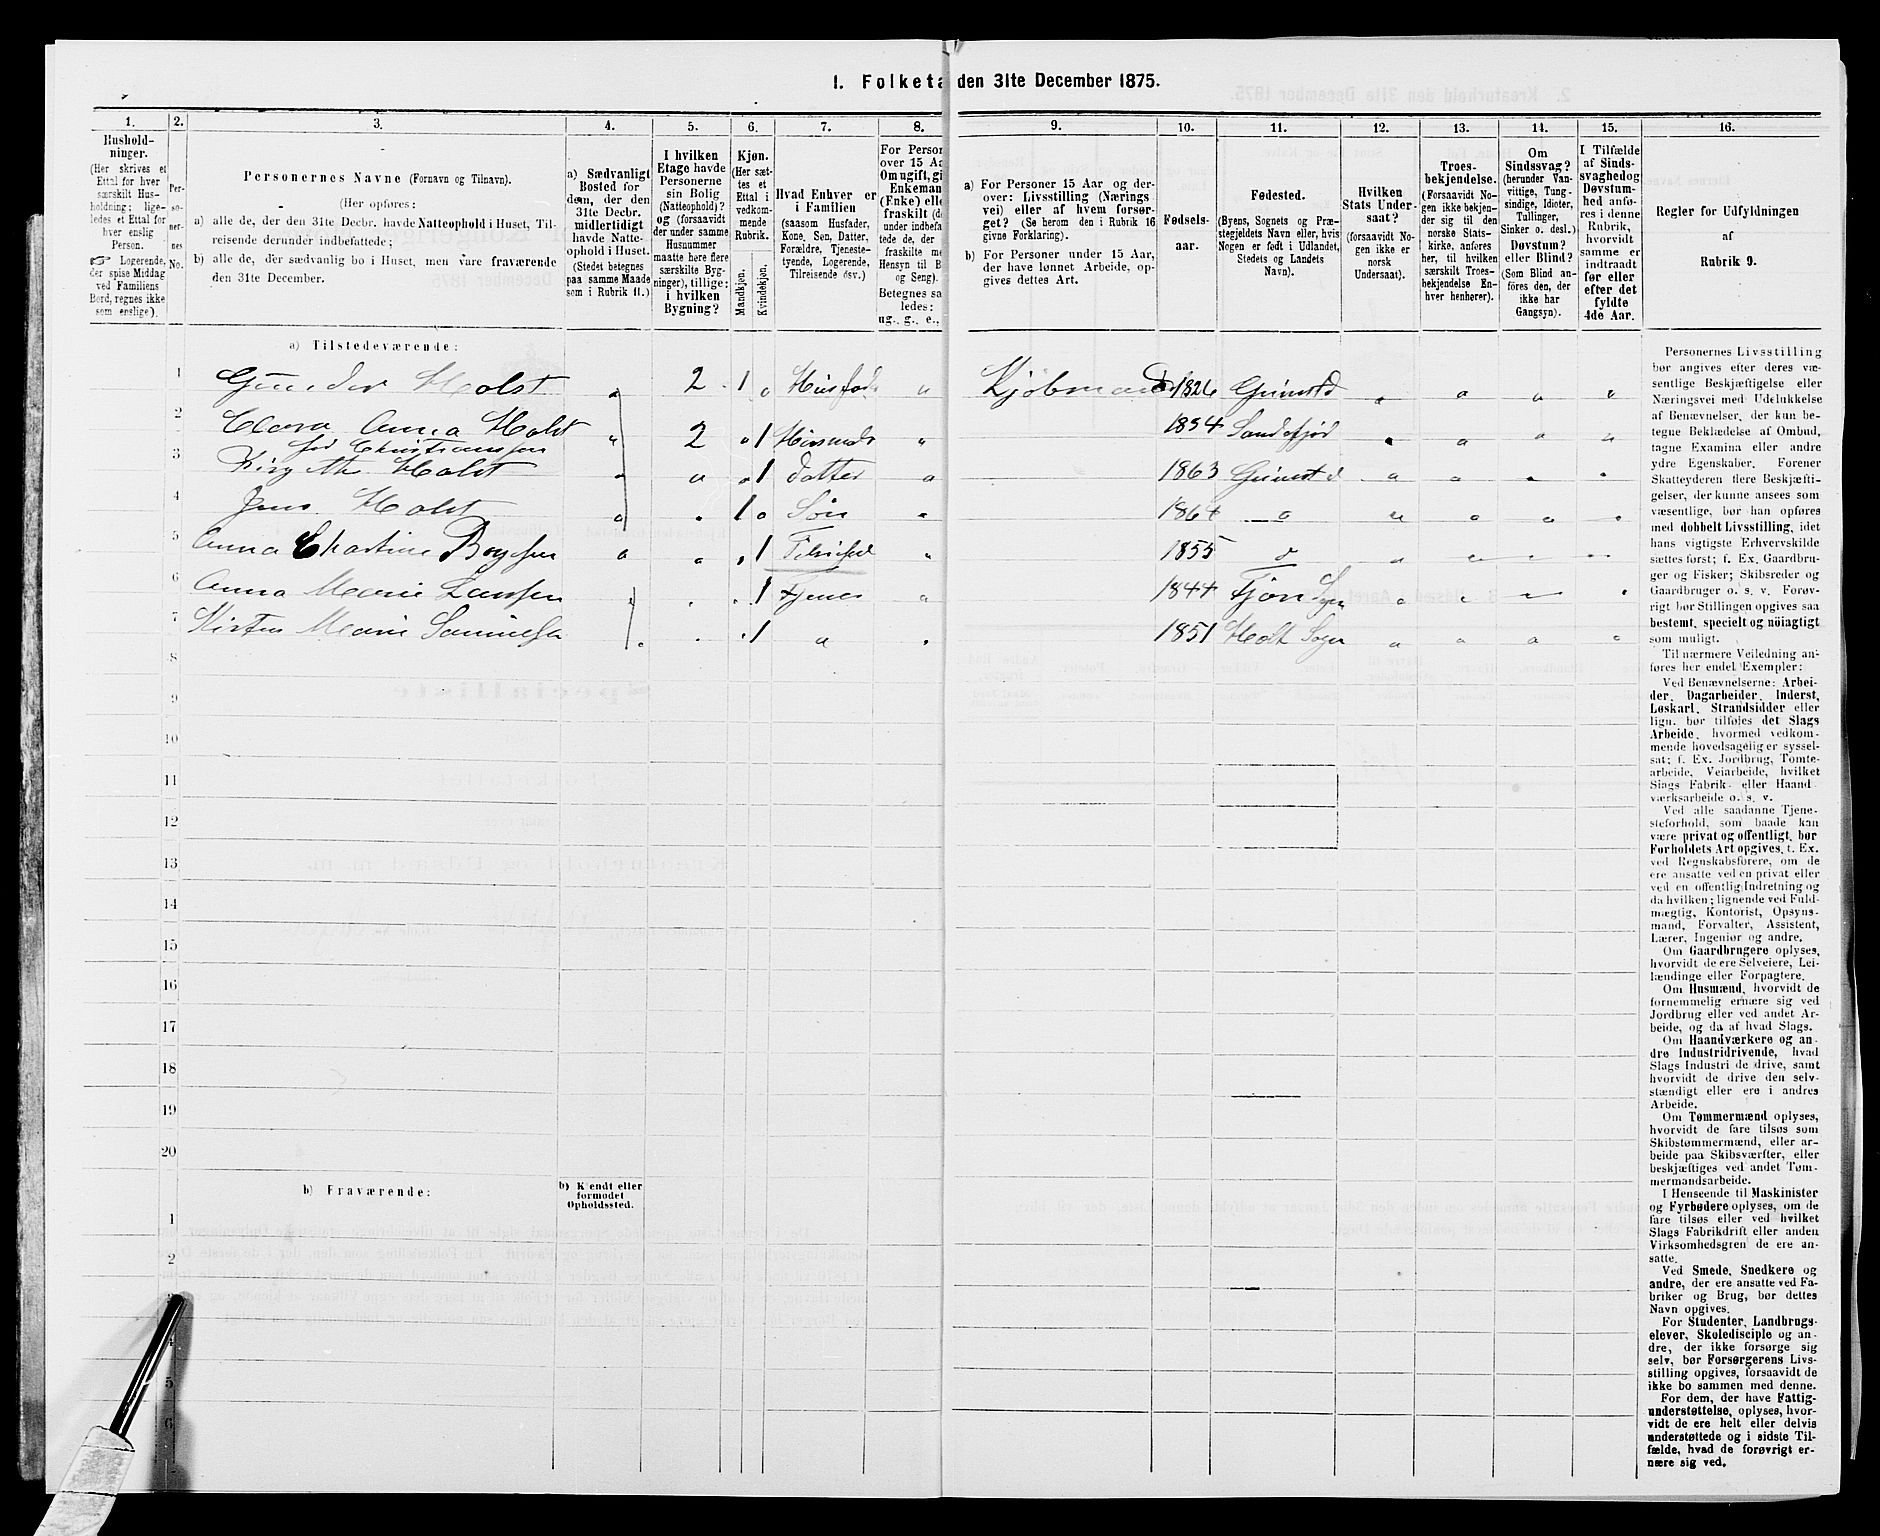 1. Folketa den 31te December 1875.
1. 2. 3. 4. 5. 6. 7. 8. 9. 10. 11. 12. 13. 14. 15. 16.
Hushold-
ninger.
(Her skrives et
Ettal for hver
særskilt Hus-
holdning; lige-
ledes et Ettal for
hver enslig
Person.
☞ Logerende,
der spise Middag
ved Familiens
Bord, regnes ikke
som enslige).
Per-
so-
ner-
nes
No.
Personernes Navne (Fornavn og Tilnavn).
(Her opføres:
a) alle de, der den 31te Decbr. havde Natteophold i Huset, Til-
reisende derunder indbefattede;
b) alle de, der sædvanlig bo i Huset, men vare fraværende
den 31te December.
a) Sædvanligt
Bosted for
dem, der den
31te Decbr.
midlertidigt
havde Natte-
ophold i Huset.
(Stedet betegnes
paa samme Maade
som i Rubrik 11.)
I hvilken
Etage havde
Personerne
sin Bolig
(Natteophold)?
og (forsaavidt
der under samme
Husnummer
maatte høre flere
særskilte Byg-
ninger), tillige:
i hvilken
Bygning?
Kjøn.
(Her sæt-
tes et
Ettal i
vedkom-
mende
Rubrik.
Mandkjøn.
Kvindekjøn.
Hvad Enhver er
i Familien
(saasom Husfader,
Kone, Søn, Datter,
Forældre, Tjeneste-
tyende, Logerende,
Tilreisende osv.)
For Person
over 15 Aa
Om ugift, gi
Enkeman
(Enke) elle
fraskilt (de
under indbefa
tede de, der
fraskilte me
Hensyn til B
og Seng).
Betegnes sa
ledes:
ug., g., e.,
a) For Personer 15 Aar og der-
over: Livsstilling (Nærings
vei) eller af hvem forsør-
get? (Se herom den i Rubrik 16
givne Forklaring).
b) For Personer under 15 Aar,
der have lønnet Arbeide, op-
gives dettes Art.
Fødsels-
aar.
Fødested.
(Byens, Sognets og Præ-
stegjeldets Navn eller, hvis
Nogen er født i Udlandet,
Stedets og Landets
Navn).
Hvilken
Stats Under-
saat?
(forsaavidt No-
gen ikke er
norsk
Undersaat).
Troes-
bekjendelse.
(Forsaavidt No-
gen ikke bekjen-
der sig til den
norske Stats-
kirke, anføres
her, til hvilken
særskilt Troes-
bekjendelse En-
hver henhører).
Om
Sindssvag?
(herunder Van-
vittige, Tung-
sindige, Idioter,
Tullinger,
Sinker o. desl.)
Døvstum?
eller Blind?
(Som Blind an-
føres den, der
ikke har
Gangsyn).
I Tilfælde
af Sinds-
svaghed og
Døvstum-
hed anfø-
res i denne
Rubrik,
hvorvidt
samme er
indtraadt
før eller
efter det
fyldte
4de Aar.
Regler for Udfyldningen
af
Rubrik 9.
a) Tilstedeværende:
1 Gunder Holst 2 1 Husfad Kjøbmand 1826 Grimstd
2 Clara Anna Holst 2 1 Husmodr 1854 Sandefjord
fød Christiansen
3 Birgitte Holst 1 Datter 1863 Grimstd
4 Jens Holst 1 Søn 1864
5 Anna Chatrine Boysen 1 1855
6 Anna Marie Larssen 1 Tjener 1844 Fjære Sogn
7 Kirsten Marie Samuelsen 1 1851 Holt Sogn
8
9
10
11
12
13
14
15
16
17
18
19
20
b) Fraværende:
b) Kjendt eller
formodet
Opholdssted.
1
2
3
4
5
6
Personernes Livsstilling
bør angives efter deres væ-
sentlige Beskjæftigelse eller
Næringsvei med Udelukkelse
af Benævnelser, der kun be-
tegne Beklædelse af Ombud,
tagne Examina eller andre
ydre Egenskaber. Forener
Skatteyderen flere Beskjæfti-
gelser, der kunne ansees som
væsentlige, bør han opføres
med dobbelt Livsstilling, idet
hans vigtigste Erhvervskilde
sættes først; f. Ex. Gaardbru-
ger og Fisker; Skibsreder og
Gaardbruger o. s. v. Forøv-
rigt bør Stillingen opgives saa
bestemt, specielt og nöiagtigt
som muligt.
Til nærmere Veiledning an-
føres her endel Exempler:
Ved Benævnelserne: Arbei-
der, Dagarbeider, Inderst,
Løskarl, Strandsidder eller
lign. bør tilføies det Slags
Arbeide, hvormed vedkom-
mende hovedsagelig er syssel-
sat; f. Ex. Jordbrug, Tomte-
arbeide, Veiarbeide, hvilket
Slags Fabrik- eller Haand
værksarbeide o. s. v.
Ved alle saadanne Tjene-
steforhold, som baade kan
være privat og offentligt, bør
Forholdets Art opgives, f. Ex.
ved Regnskabsførere, om de
ere ansatte ved en privat eller
ved en offentlig Indretning og
da hvilken; lignende ved Fuld-
mægtig, Kontorist, Opsyns-
mand, Forvalter, Assistent,
Lærer, Ingeniør og andre.
Om Gaardbrugere oplyses,
hvorvidt de ere Selveiere, Lei-
lændinge eller Forpagtere.
Om Husmænd, hvorvidt de
fornemmelig ernære sig ved
Jordbrug eller ved andet Ar-
beide, og da af hvad Slags.
Om Haandværkere og an-
dre Industridrivende, hvad
Slags Industri de drive, samt
hvorvidt de drive den selv-
stændigt eller ere i andres
Arbeide.
Om Tømmermænd oplyses,
hvorvidt de fare tilsøs som
Skibstømmermænd, eller ar-
beide paa Skibsværfter, eller
beskjæftiges ved andet Tøm-
mermandsarbeide.
I Henseende til Maskinister
og Fyrbødere oplyses, om de
fare tilsøs eller ved hvilket
Slags Fabrikdrift eller anden
Virksomhedsgren de ere an-
satte.
Ved Smede, Snedkere og
andre, der ere ansatte ved Fa-
briker og Brug, bør dettes
Navn opgives.
For Studenter, Landbrugs-
elever, Skoledisciple og an-
dre, der ikke forsørge sig
selv, bør Forsørgerens Livs-
stilling opgives, forsaavidt de
ikke bo sammen med denne.
For dem, der have Fattig-
understøttelse, oplyses, hvor-
vidt de ere helt eller delvis
understøttede og i sidste Til-
fælde, hvad de forøvrigt er-
nære sig ved.